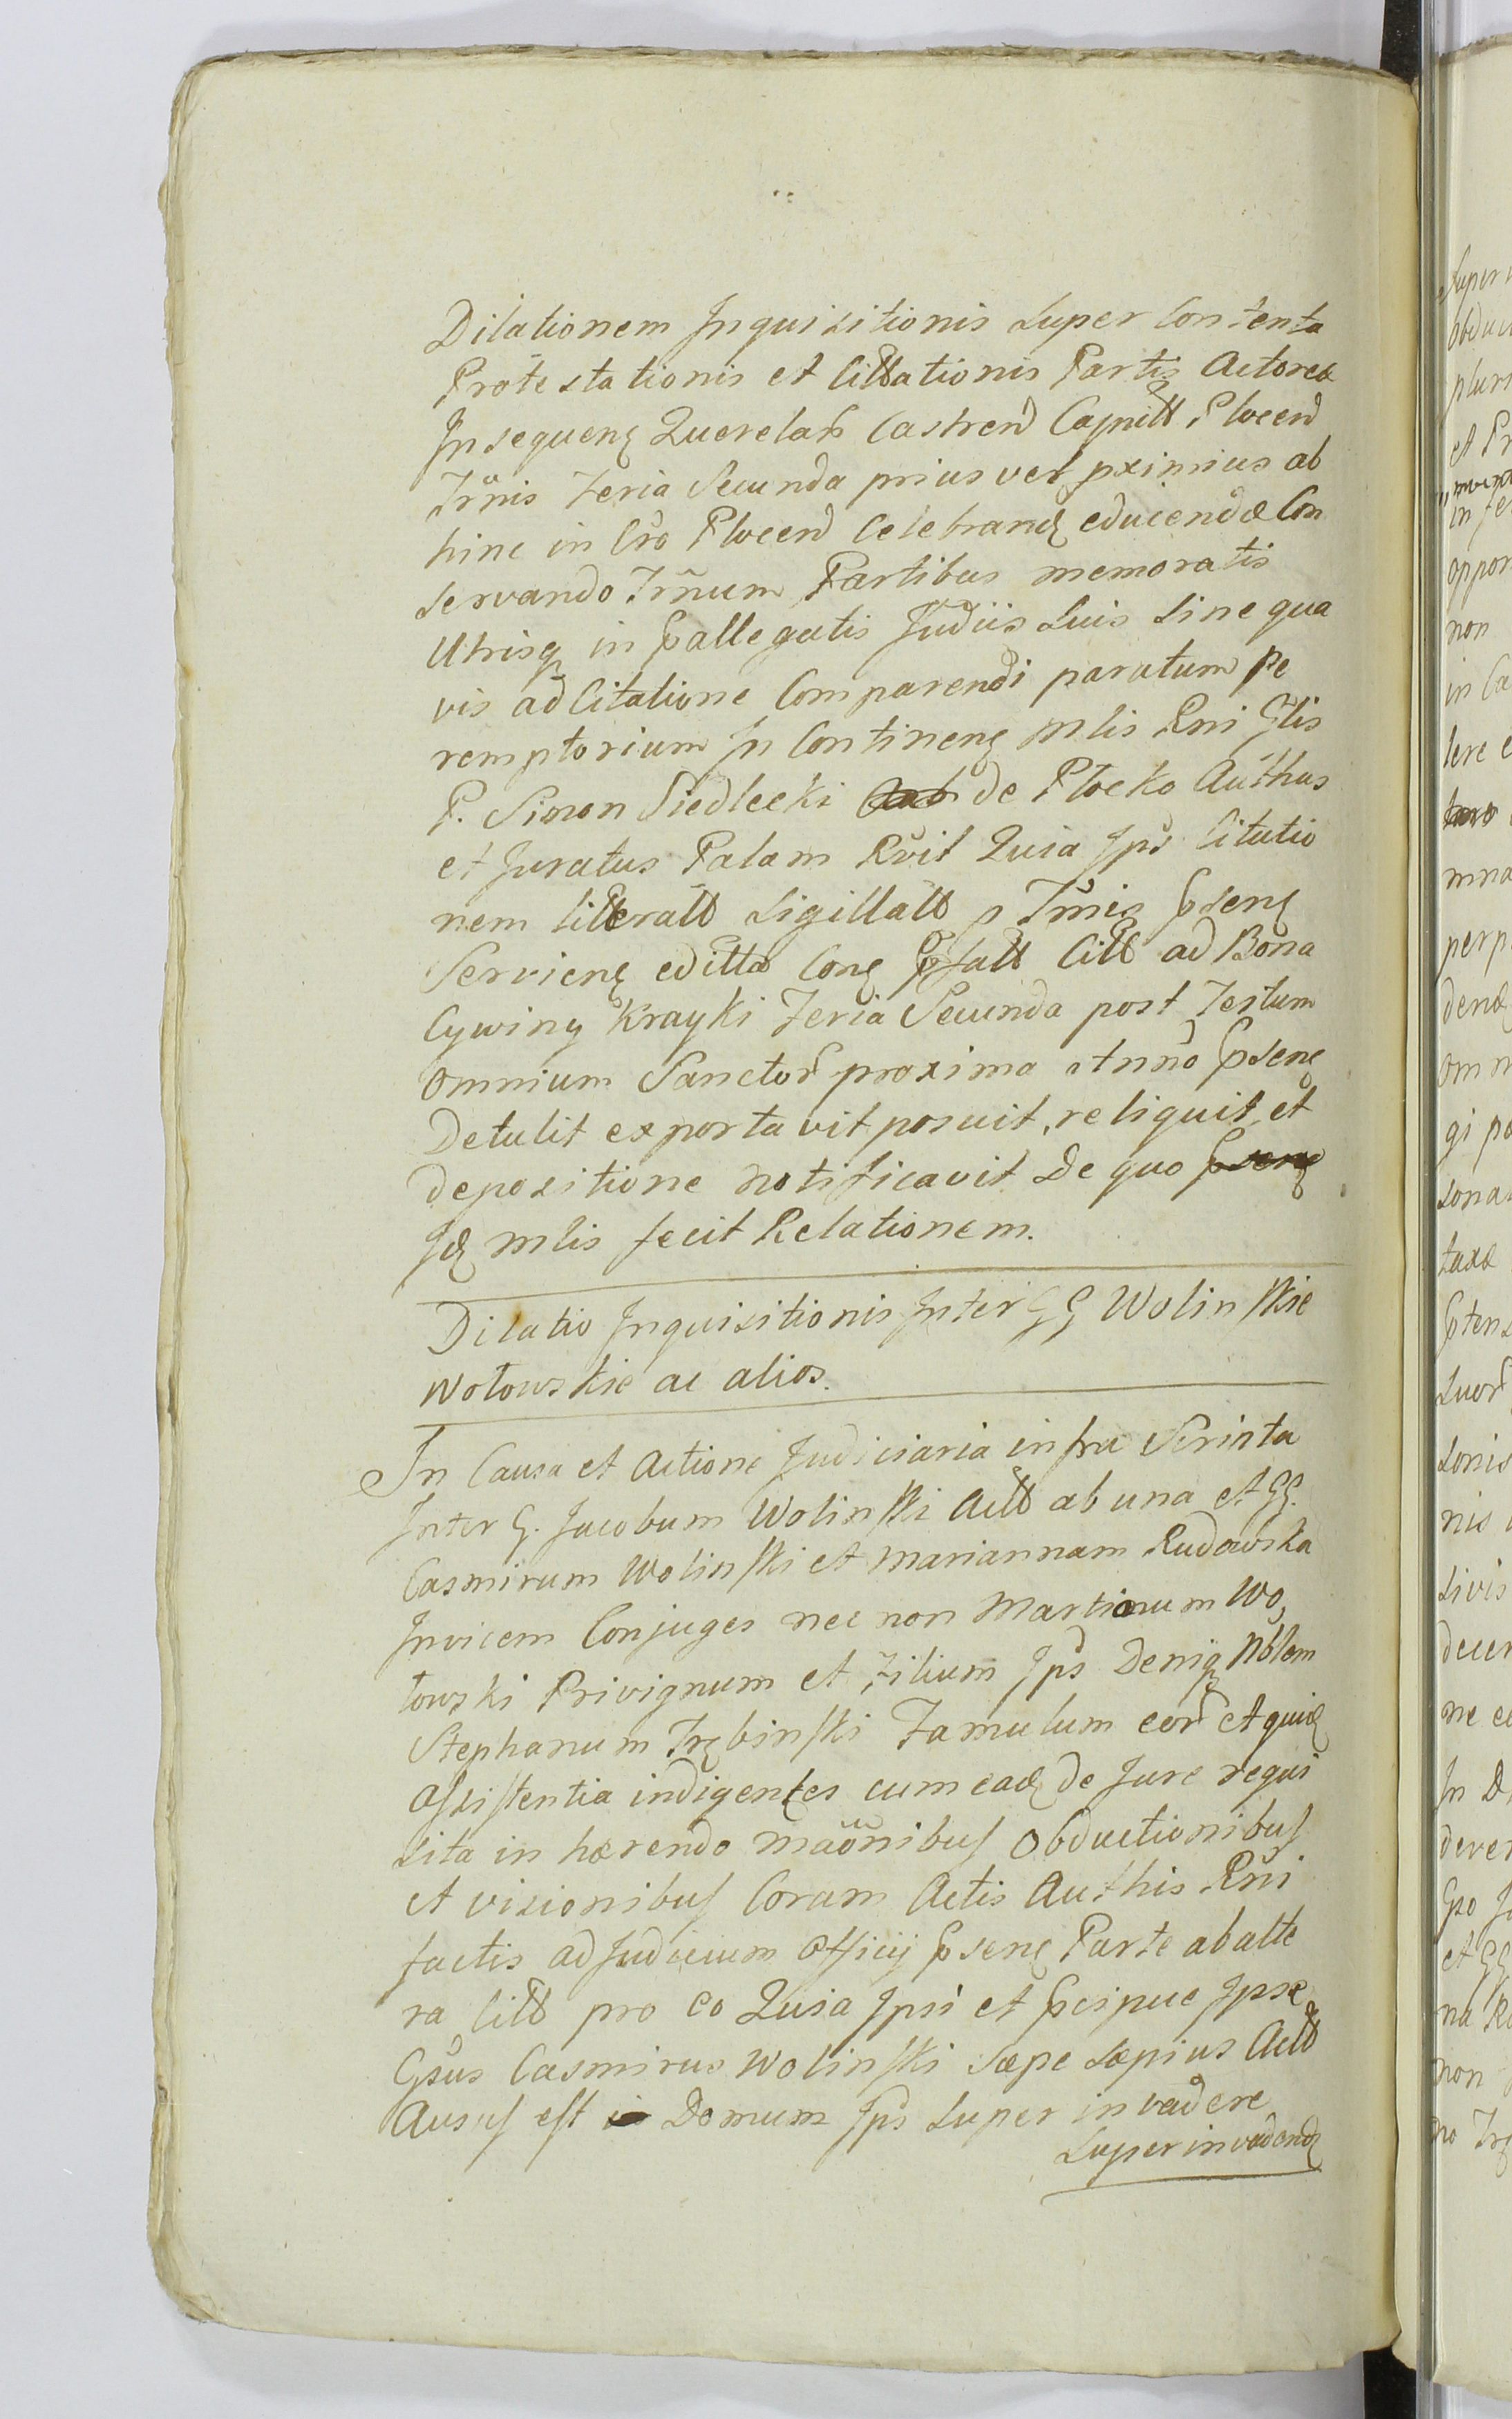 Dilationem Inquisitionis super Contenta
Protestationis et Cittationis Partis Actorea
In sequenę Querelah Castrenđ Capnłł Plocenđ
Tr̃nis Feria Secunda prius vel pximius ab
hinc in Cro Plocenđ Celebranđ educendæ Con
servando Tr̃num Partibus memoratis
Utrisq in pallegatis Judiis suis sine qua
vis ad Citatione Comparendi paratum pe
remptorium In Continenę Mlis Rni Glis
P. Simon Siedlecki de Płocko Authus
et Juratus Palam Rvit Quia Ips Citatio
nem litteratt sigillatt p Tr̃nis psenę
Servienę editta Conę psatt Citt ad Bona
Cywiny Krayki Feria Secunda post Festum
Omnium Sanctor proxima Anno psenę
Detulit exportavit posuit, reliquit et
depositione notificavit De quo psenę
Id Mlis fecit Relationem.
Dilatio Inquisitionis Inter GG Wolinskie
Wołowskie ac alios.
In Causa et Actione Judiciaria infra Scripta
Inter G. Jacobum Wolinski Actt ab una et GG.
Casmirum Wolinski et Mariannam Rudowska
Invicem Conjuges nec non Martinum Wo
łowski Privignum et Filium Ips Deniq Nblem
Stephanum Trębinski Famulum eor et quid
Assistentia indigentes cum ead de Jure requi
sita in hærendo mãonibus Obductionibus
et visionibus Coram Actis Authis Rni
factis ad Judicium Officij psenę Parte ab alte
ra Citt pro eo Quia Ipsi et pcipue Ipse
Gsus Casmirus Wolinski sæpe sæpius Actt
Ausus est Domum Ips super invadere
superinvadend